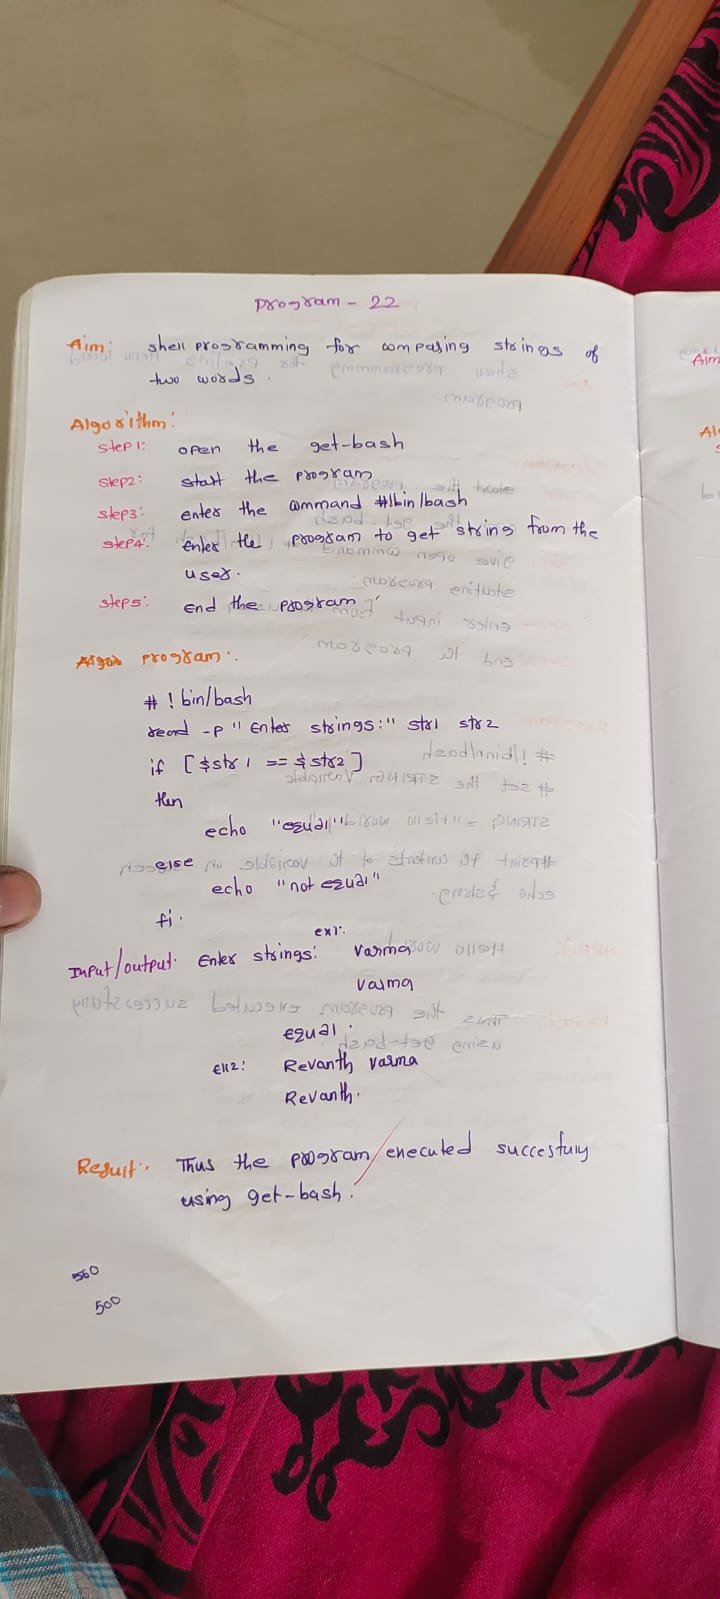 Program - 22
Aim: shell programming for comparing strings of
two words.
Algorithm:
Step1: open the get-bash
Step2: start the program
Step3: enter the command #!bin/bash
Step4: enter the program to get string from the
user.
Step5: End the program.
program:
# ! bin/bash
read -p "Enter strings:" str1 str2
if [$str1 == $str2]
then
echo "equal"
else
echo "not equal"
fi.
ex1:
Input/output. Enter strings: varma
varma
equal.
ex2: Revanth varma
Revanth.
Result: Thus the program executed succesfuly
using get-bash.
560
500
Aim